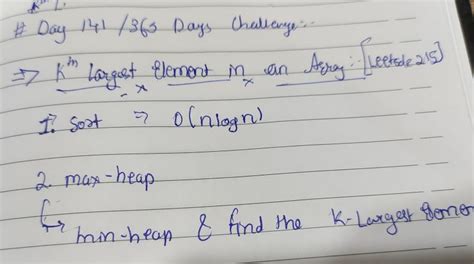 # Day 141 /365 Days Challenge:-
⇒ Kth Largest Element in an Array:- [Leetcode 215]
1. Sort ⇒ O(nlogn)
2. max-heap
↳ min-heap & find the K-Largest Element